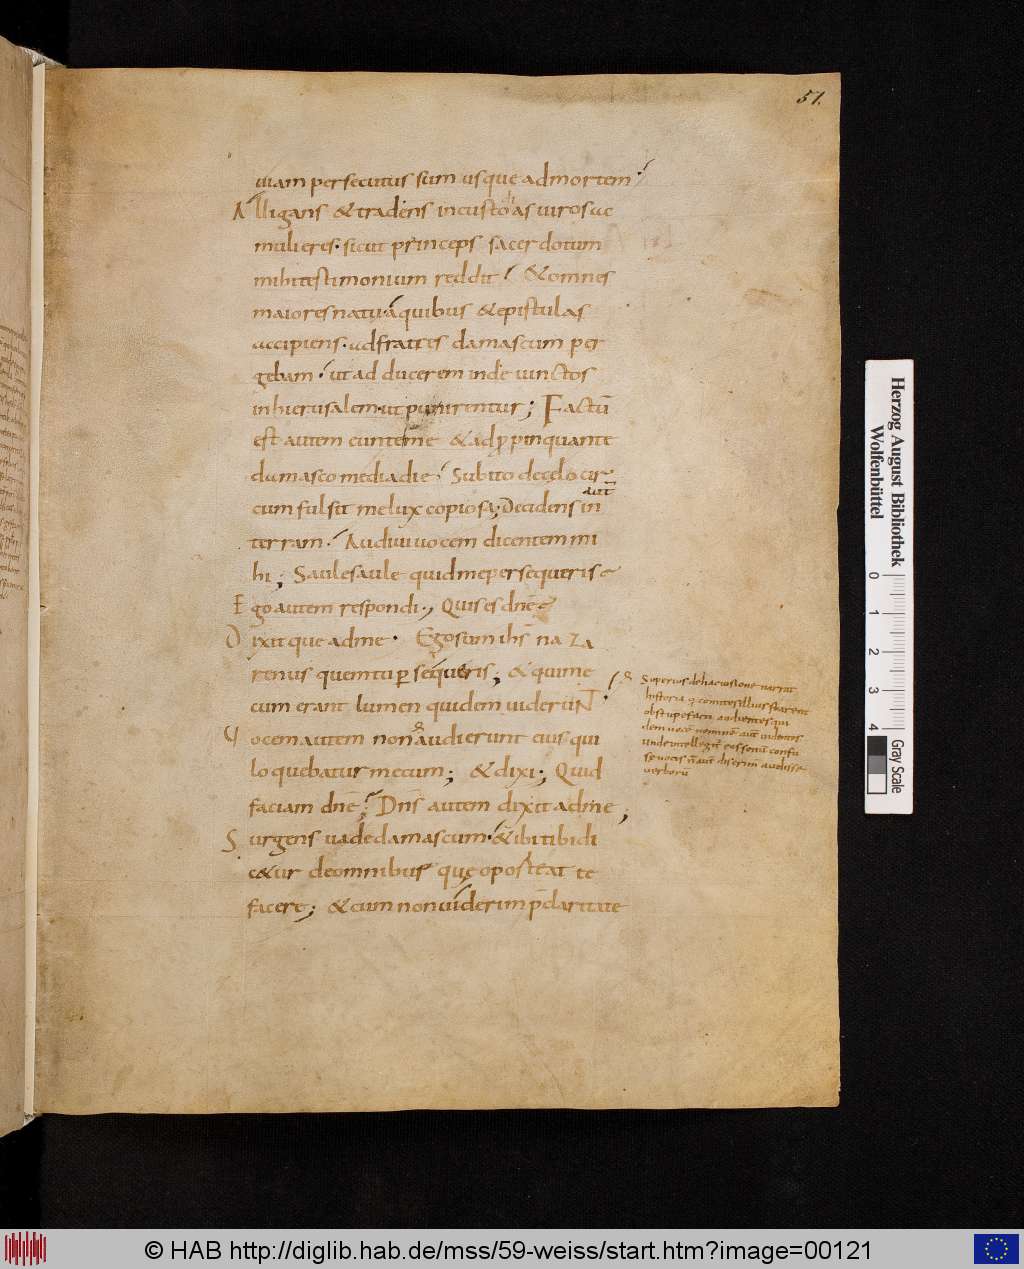 51.
uiam persecutus sum usque admortem
Alligans & tradens incustodias uiros ac
mulieres. sicut princeps sacerdotum
mihi testimonium reddit & omnes
maiores natu, a quibus & epistulas
accipiens. ad fratres damascum per
gebam ut ad ducerem inde uinctos
inhierusalem ut punirentur; Factū
est autem eunte me & adꝓpinquante
damasco media die Subito de cęlo cir
cum fulsit me lux copiosa; Decidens in
aut̄
terram. Audiui uocem dicentem mi
hi; Saule saule quid me persequeris
Ego autem respondi., Quis es dnē
Dixit que adme. Ego sum ihs̄ naza
renus quem tu ꝑsequeris; & qui me
cum erant lumen quidem uiderūNT
Uocem autem non audierunt eius qui
loquebatur mecum; & dixi; Quid
faciam dnē; Dn̄s autem dixit adme;
Surgens uade damascum. & ibi tibi di
c&ur de omnibus quę oporteat te
facere; & cum non uiderim p̄claritate
Superius de hac uisione narrat
historia q comites illius starent
obstupefacti audientes qui
dem uocē neminē aut̄ uidentes
unde intellegit̄ eos sonū confu
se uocis n̄ aut̄ discrim̄ audisse
uerborū
Herzog August Bibliothek
Wolfenbüttel
0 1 2 3 4
Gray Scale
© HAB http://diglib.hab.de/mss/59-weiss/start.htm?image=00121